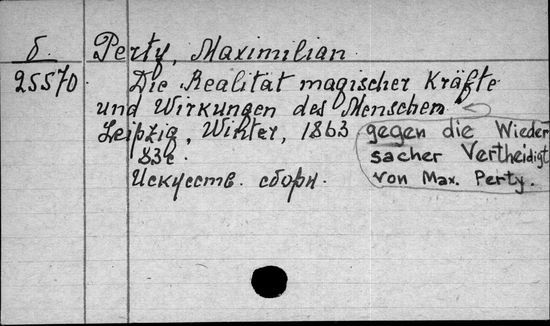 б. Perty, Maximilian
25570 Die Realität magischer Kräfte
und Wirkungen des Menschen
Leipzig, Winter, 1863
83с.
Искусств. сборн.
gegen die Wieder
sacher Vertheidigt
von Max. Perty.